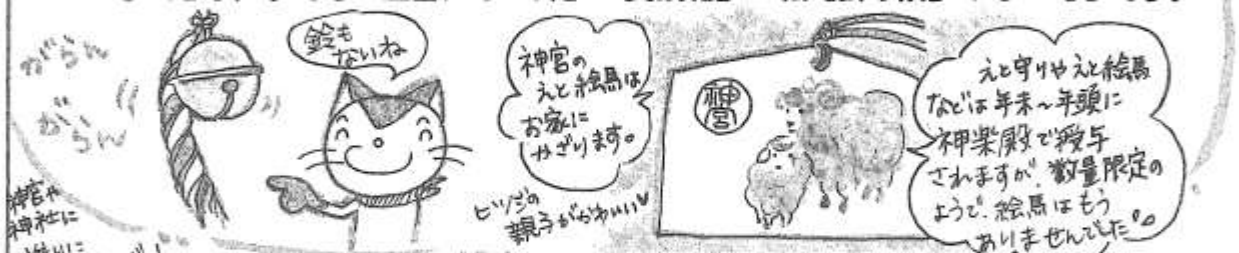 がらん
がらん
鈴も
ないね
神宮の
えと絵馬は
お家に
かざります。
ヒツジの
親子がかわいい
神宮
えと守りやえと絵馬
などは年末～年頭に
神楽殿で授与
されますが、数量限定の
ようで、絵馬はもう
ありませんでした
神宮や
神社に